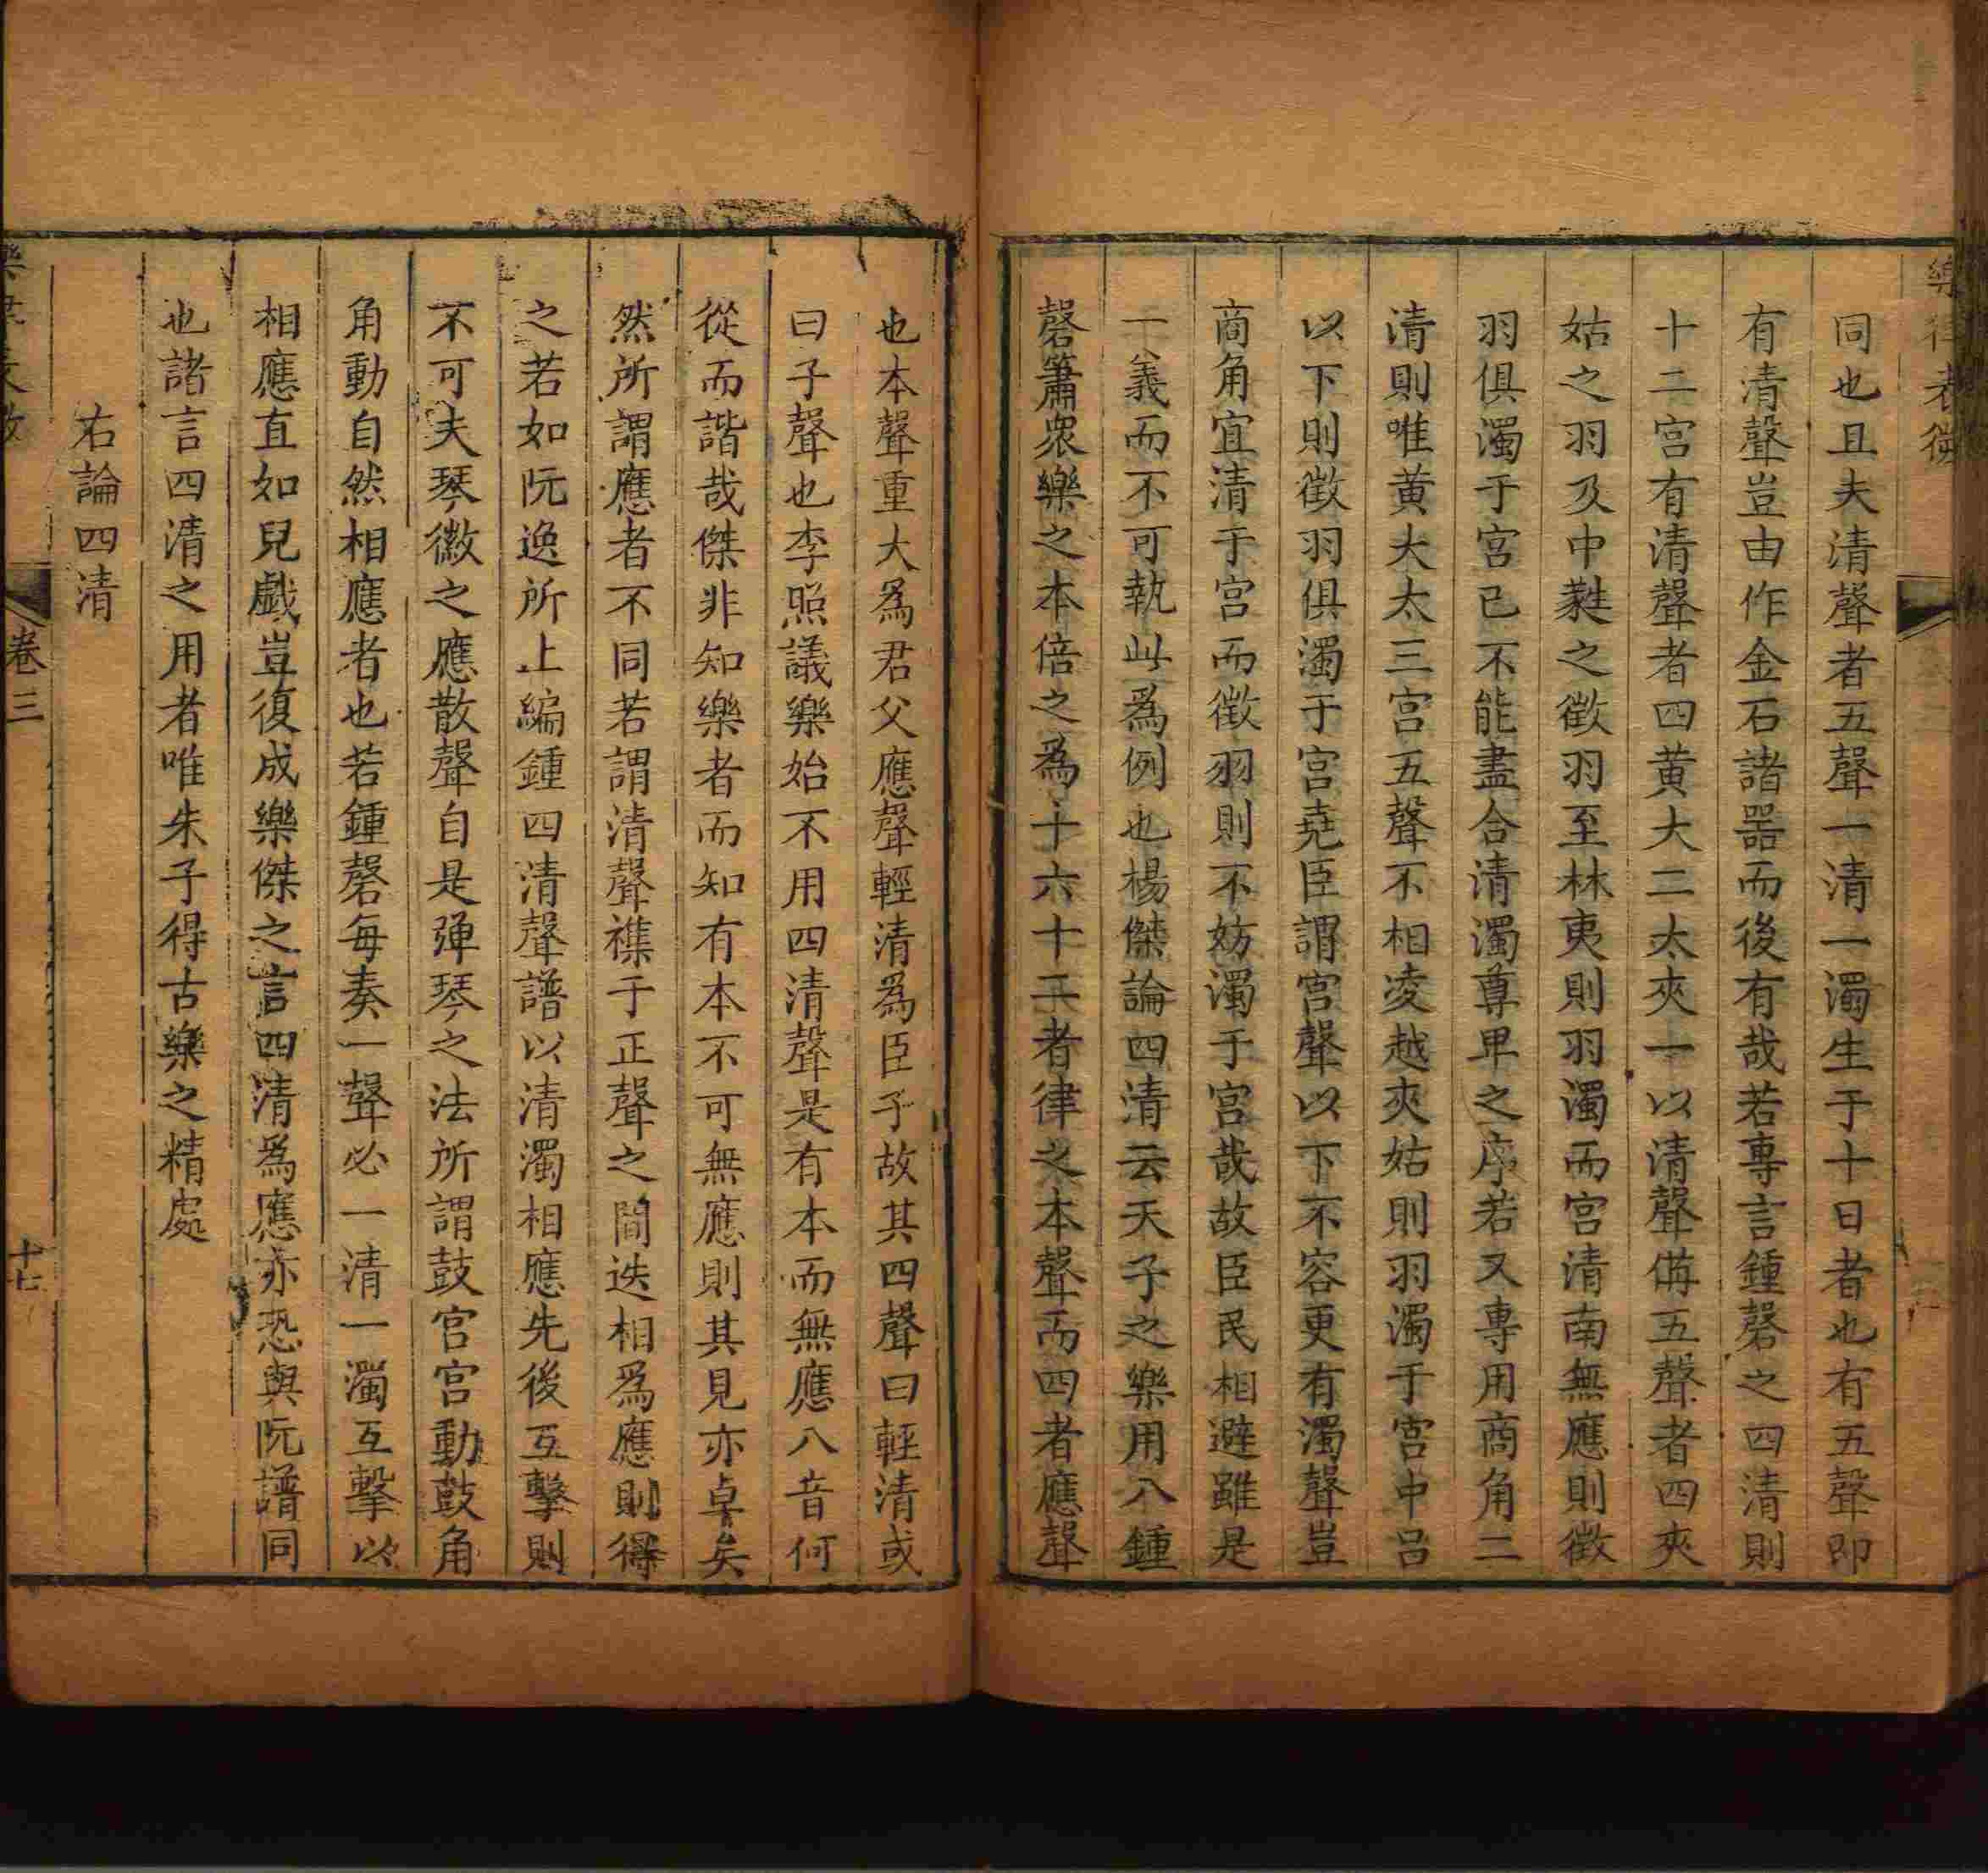 同也且夫清聲者五聲一清一濁生于十日者也有五聲即
有清聲豈由作金石諸器而後有哉若專言鍾磬之四清則
十二宮有清聲者四黄大二太夾一以清聲備五聲者四夾
姑之羽及中蕤之徵羽至林夷則羽濁而宮清南無應則徵
羽俱濁于宮已不能盡合清濁尊卑之序若又專用商角二
清則唯黄大太三宮五聲不相凌越夾姑則羽濁于宮中呂
以下則徵羽俱濁于宮堯臣謂宮聲以下不容更有濁聲豈
商角宜清于宮而徵羽則不妨濁于宮哉故臣民相避雖是
一義而不可執此為例也楊傑論四清云天子之樂用八鍾
磬簫衆樂之本倍之為十六十二者律之本聲而四者應聲
也本聲重大為君父應聲輕清為臣子故其四聲曰輕清或
曰子聲也李照議樂始不用四清聲是有本而無應八音何
從而諧哉傑非知樂者而知有本不可無應則其見亦卓矣
然所謂應者不同若謂清聲襍于正聲之間迭相為應則得
之若如阮逸所上編鍾四清聲譜以清濁相應先後互擊則
不可夫琴徽之應散聲自是彈琴之法所謂鼓宮宮動鼓角
角動自然相應者也若鍾磬每奏一聲必一清一濁互擊以
相應直如兒戲豈復成樂傑之言四清為應亦恐與阮譜同
也諸言四清之用者唯朱子得古樂之精處
右論四清
卷三
十七